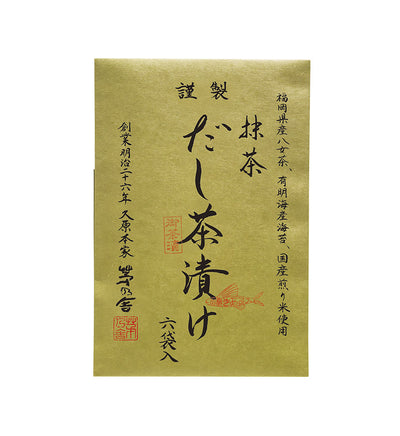 謹製
福岡県産八女茶、有明海産海苔、国産煎り米使用
抹茶
だし茶漬け
六袋入
御茶漬
創業明治二十六年 久原本家 茅乃舎